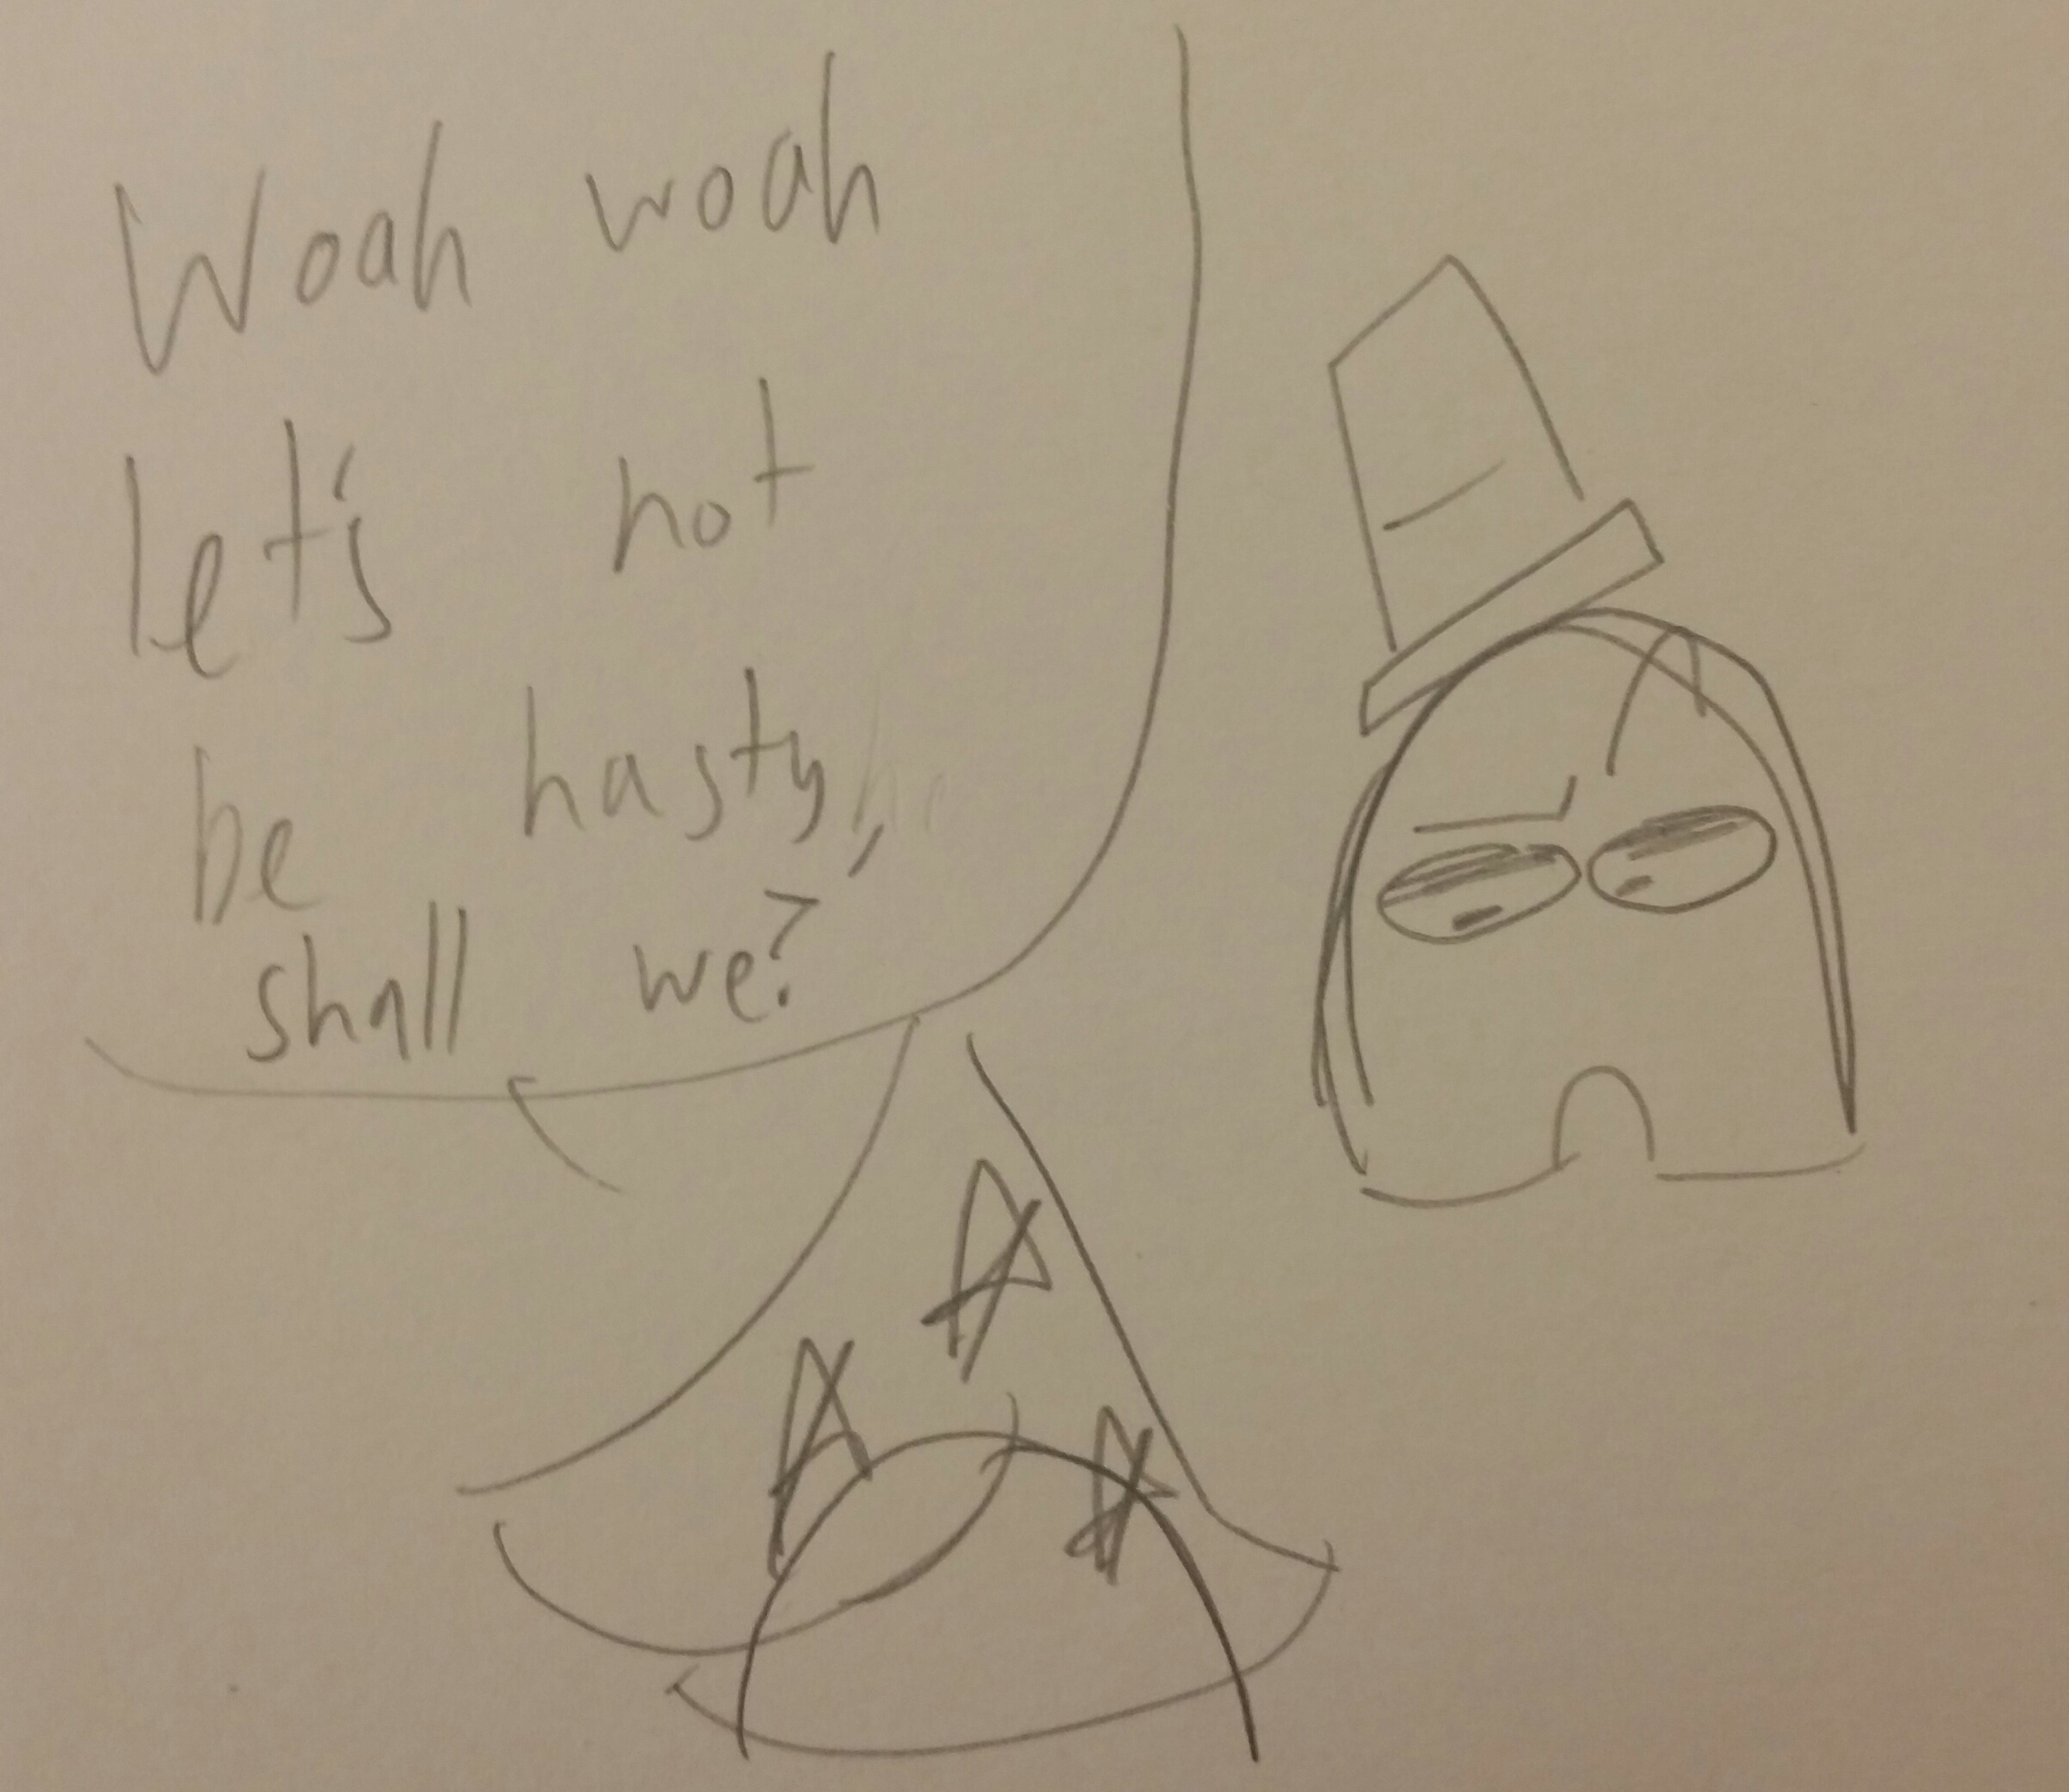 Woah woah
let's not
be hasty,
shall we?